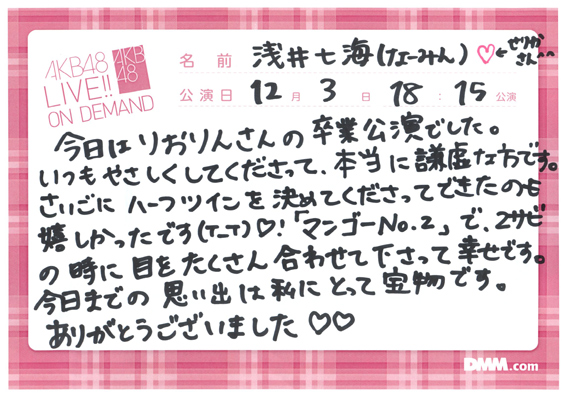 AKB48
LIVE!!
ON DEMAND
AKB
48
名前 浅井七海(なーみん)♡←せりか
さん
公演日 12月3日 18:15公演
今日はりおりんさんの卒業公演でした。
いつもやさしくしてくださって、本当に謙虚な方です。
さいごにハーフツインを決めてくださってできたのも
嬉しかったです(T-T)♡!「マンゴーNo.2」で、2サビ
の時に目をたくさん合わせて下さって幸せです。
今日までの思い出は私にとって宝物です。
ありがとうございました♡♡
DMM.com